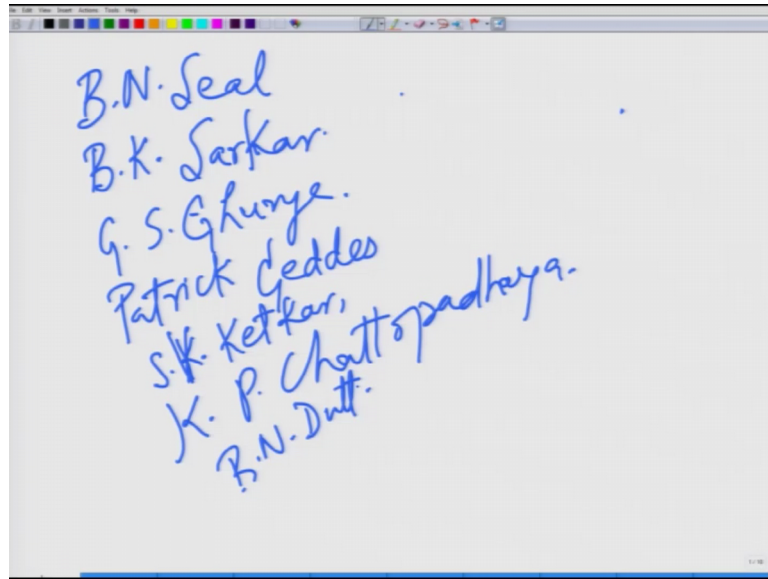 File Edit View Insert Actions Tools Help
B.N. Seal
B.K. Sarkar.
G. S. Ghurye.
Patrick Geddes
S.V. Ketkar,
K. P. Chattopadhaya.
B.N. Dutt.
1/10